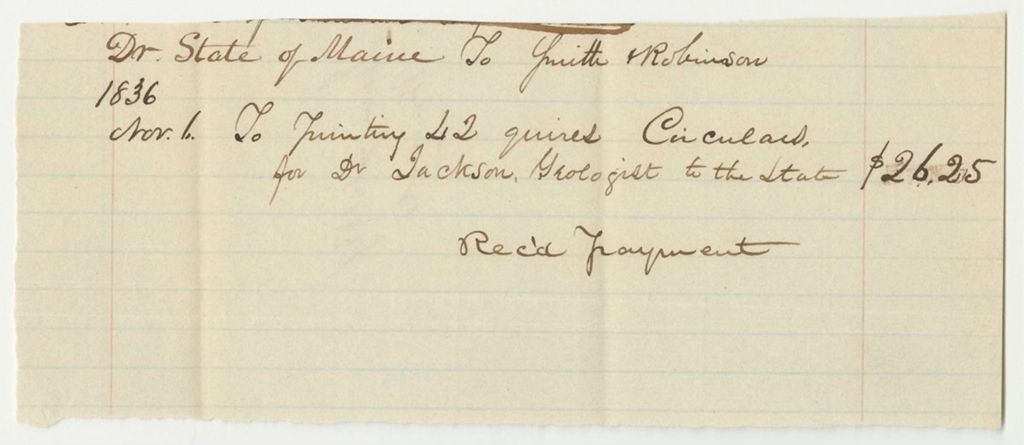 Dr. State of Maine To Smith & Robinson
1836
Nov. 1. To printing 42 quires Circulars,
for Dr Jackson, Geologist to the State $26.25
Rec'd payment